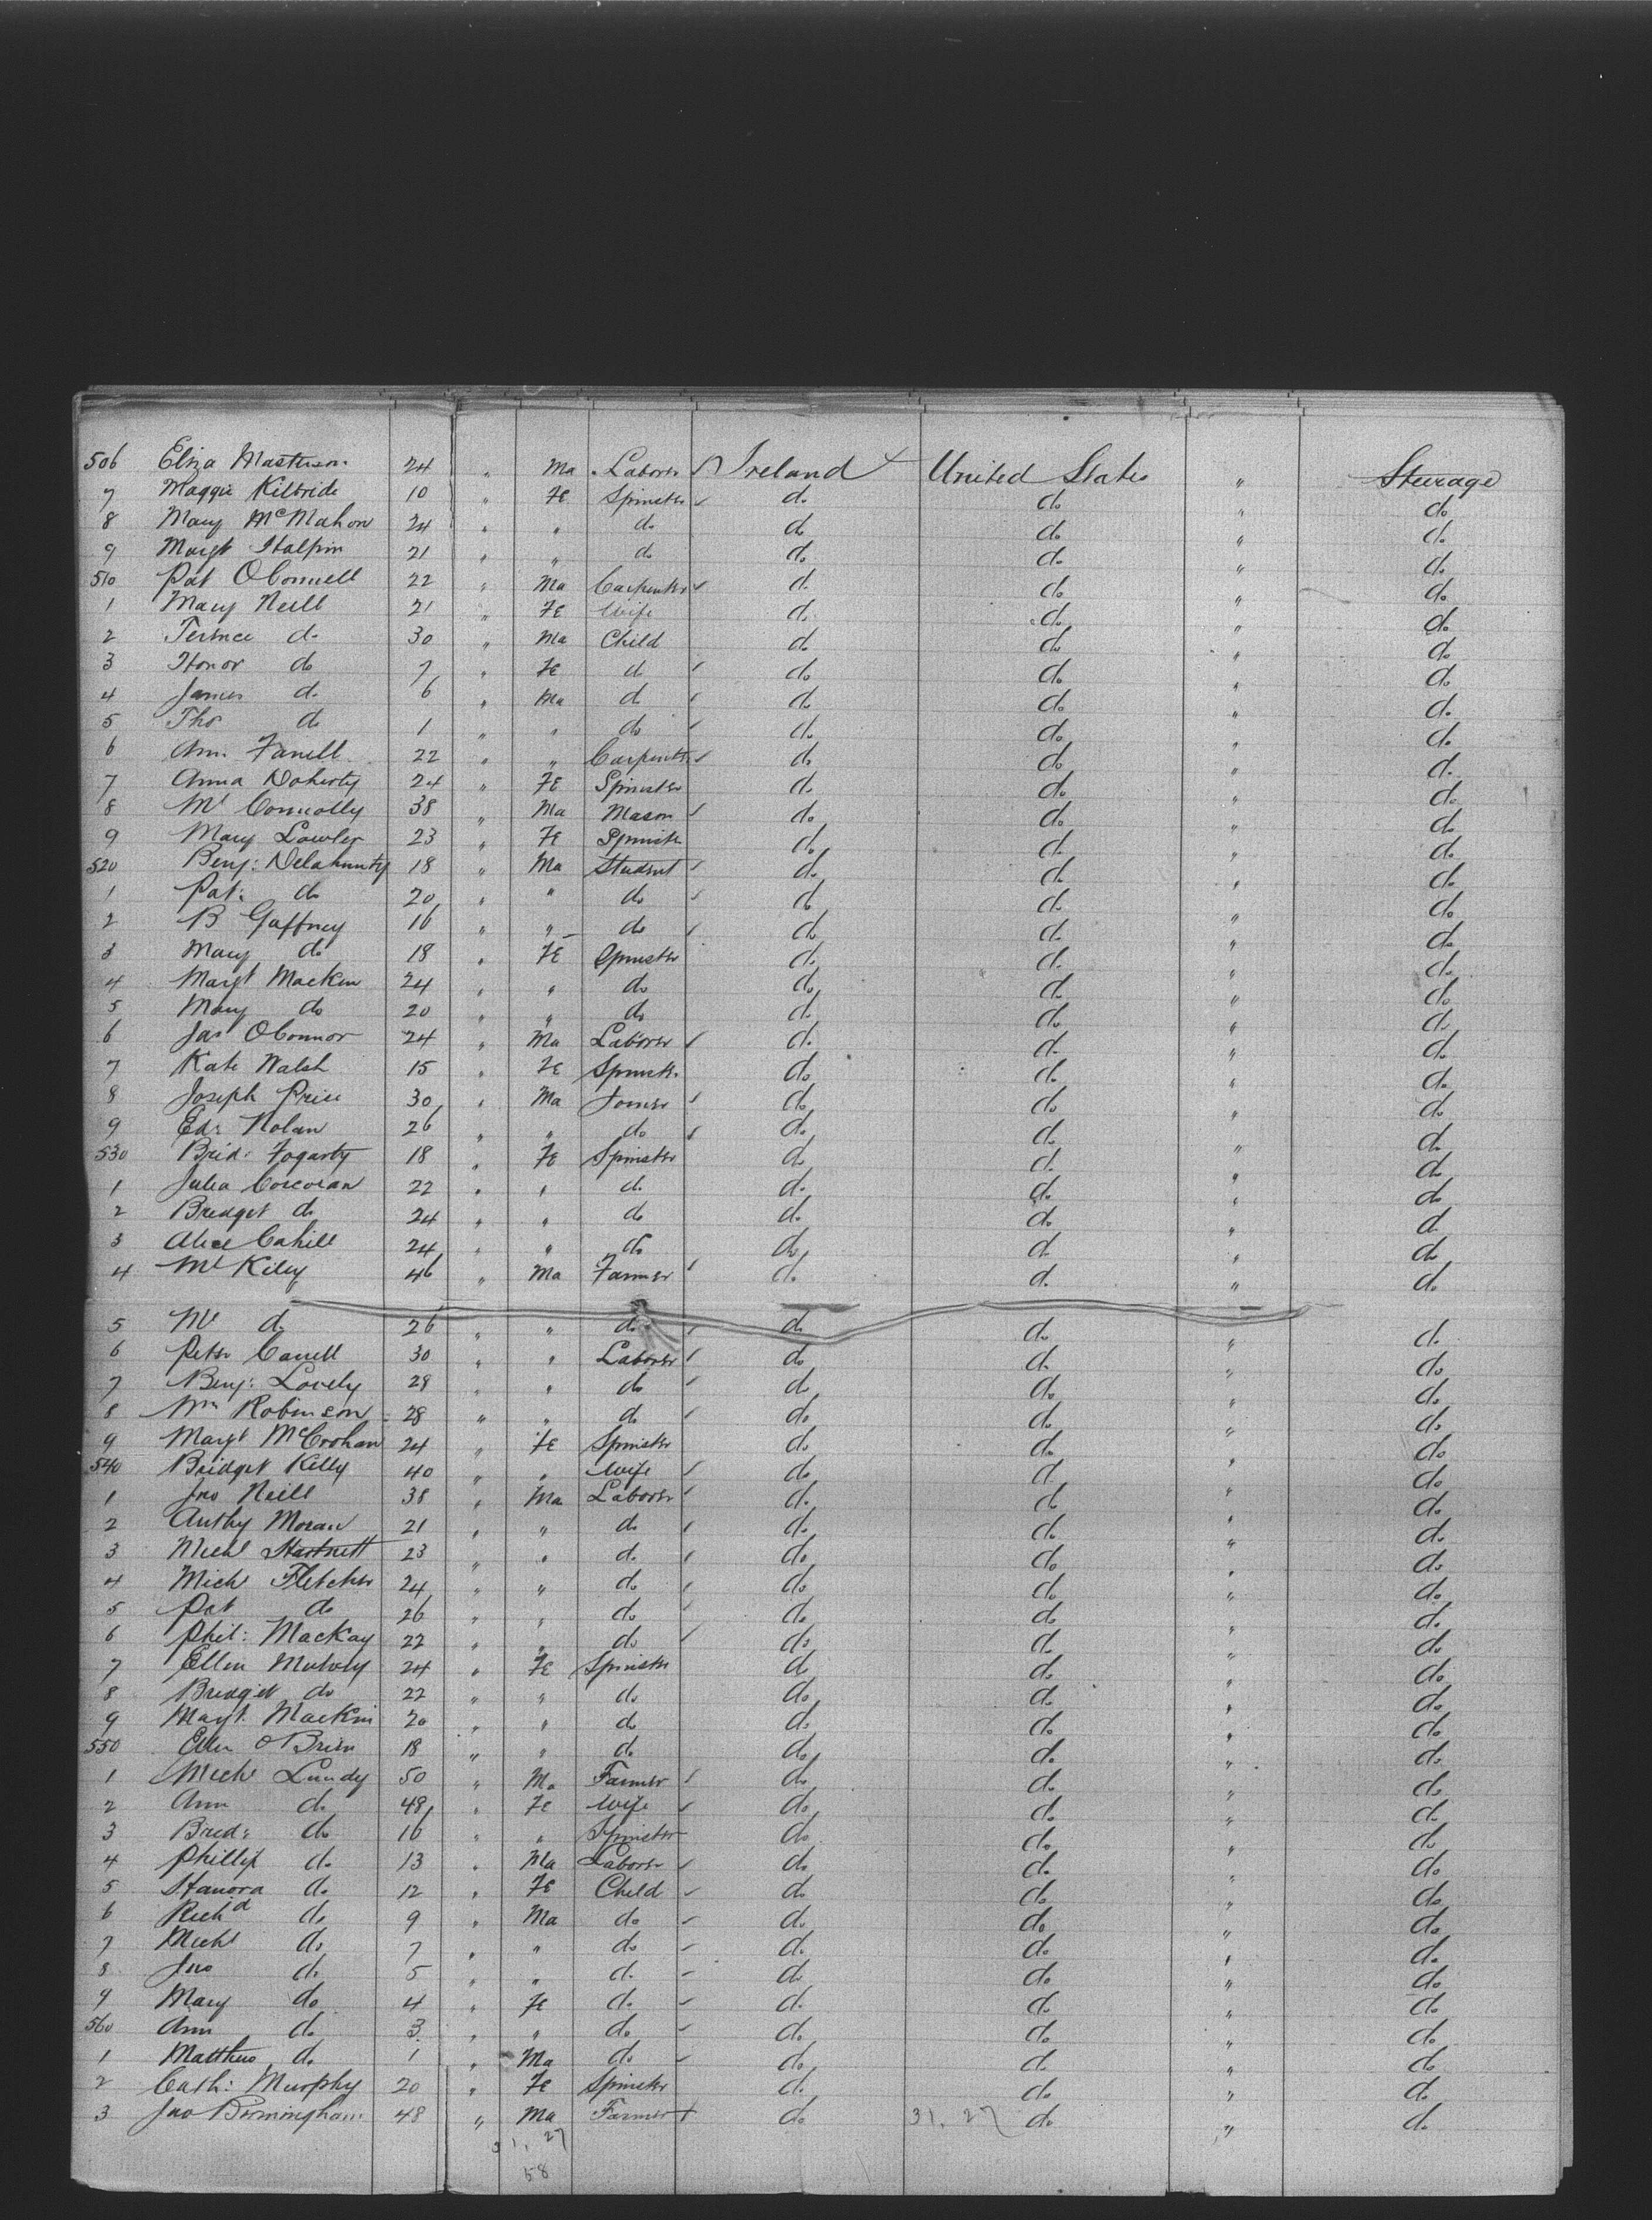 506 Eliza Masterson 24 " Ma Laborer ✓ Ireland United States " Steerage
7 Maggie Kilbride 10 " Fe Spinster ✓ do do " do
8 Mary McMahon 24 " " do do do " do
9 Margt Halpin 21 " " do do do " do
510 Pat OConnell 22 " Ma Carpenter ✓ do do " do
1 Mary Neill 21 " Fe Wife do do " do
2 Terence do 30 " Ma Child do do " do
3 Honor do 7 " Fe do ✓ do do " do
4 James do 6 " Ma do ✓ do do " do
5 Tho do 1 " " do ✓ do do " do
6 Farrell 22 " " Carpenter ✓ do do " do
7 Anna Doherty 24 " Fe Spinster do do " do
8 Ml Connolly 38 " Ma Mason ✓ do do " do
9 Mary Lawler 23 " Fe Spinster do do " do
520 Benj: Delahunty 18 " Ma Student ✓ do do " do
1 Pat: do 20 " " do ✓ do do " do
2 B Gaffney 16 " " do ✓ do do " do
3 Mary do 18 " Fe Spinster do do " do
4 Margt Macken 24 " " do do do " do
5 Mary do 20 " " do do do " do
6 Jas OConnor 24 " Ma Laborer ✓ do do " do
7 Kate Walsh 15 " Fe Spinstr do do " do
8 Joseph Price 30 " Ma Joiner ✓ do do " do
9 Ed: Nolan 26 " " do ✓ do do " do
530 Brid: Fogarty 18 " Fe Spinster do do " do
1 Julia Corcoran 22 " " do do do " do
2 Bridget do 24 " " do do do " do
3 Alice Cahill 24 " " do do do " do
4 Ml Kiley 46 " Ma Farmer ✓ do do " do
5 Ml do 26 " " do ✓ do do " do
6 Peter Carrell 30 " " Laborer ✓ do do " do
7 Benj: Lovely 28 " " do ✓ do do " do
8 Wm Robinson 28 " " do ✓ do do " do
9 Margt McCrohan 24 " Fe Spinster do do " do
540 Bridget Kelly 40 " " Wife ✓ do do " do
1 Jno Neill 38 " Ma Laborer ✓ do do " do
2 Anthy Moran 21 " " do ✓ do do " do
3 Michl Hartnett 23 " " do ✓ do do " do
4 Michl Fletcher 24 " " do ✓ do do " do
5 Pat do 26 " " do ✓ do do " do
6 Phil: Mackay 22 " " do ✓ do do " do
7 Ellen Mulvey 24 " Fe Spinster do do " do
8 Bridget do 22 " " do do do " do
9 Margt. Mackin 20 " " do do do " do
550 Ellen OBrien 18 " " do do do " do
1 Michl Lundy 50 " Ma Farmer ✓ do do " do
2 Ann do 48 " Fe Wife ✓ do do " do
3 Brid: do 16 " " Spinster do do " do
4 Phillip do 13 " Ma Laborer ✓ do do " do
5 Hanora do 12 " Fe Child ✓ do do " do
6 Richd do 9 " Ma do ✓ do do " do
7 Michl do 7 " " do ✓ do do " do
8 Jno do 5 " " do ✓ do do " do
9 Mary do 4 " Fe do ✓ do do " do
560 Ann do 3 " " do ✓ do do " do
1 Matthew do 1 " Ma do ✓ do do " do
2 Cath: Murphy 20 " Fe Spinster do do " do
3 Jno Birmingham 48 " Ma Farmer do 31. 27 do " do
31. 27
58